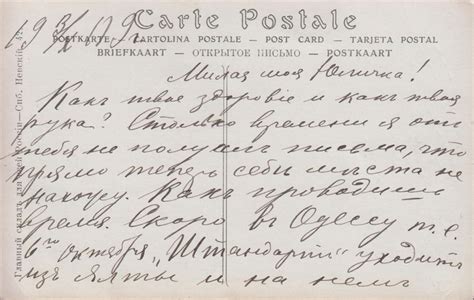 Carte Postale
POSTKARTE – CARTOLINA POSTALE – POST CARD – TARJETA POSTAL
BRIEFKAART – ОТКРЫТОЕ ПИСЬМО – POSTKAART
Милая моя Юличка!
Какъ твое здоровіе и какъ твоя
рука? Столько времени я отъ
тебя не получалъ письма, что
прямо теперь себѣ мѣста не
нахожу. Какъ проводишь
время. Скоро въ Одессу т.е.
6го октября „Штандартъ" уходитъ
изъ Ялты и на немъ
Главный складъ для всей Россіи—Спб. Невскій,